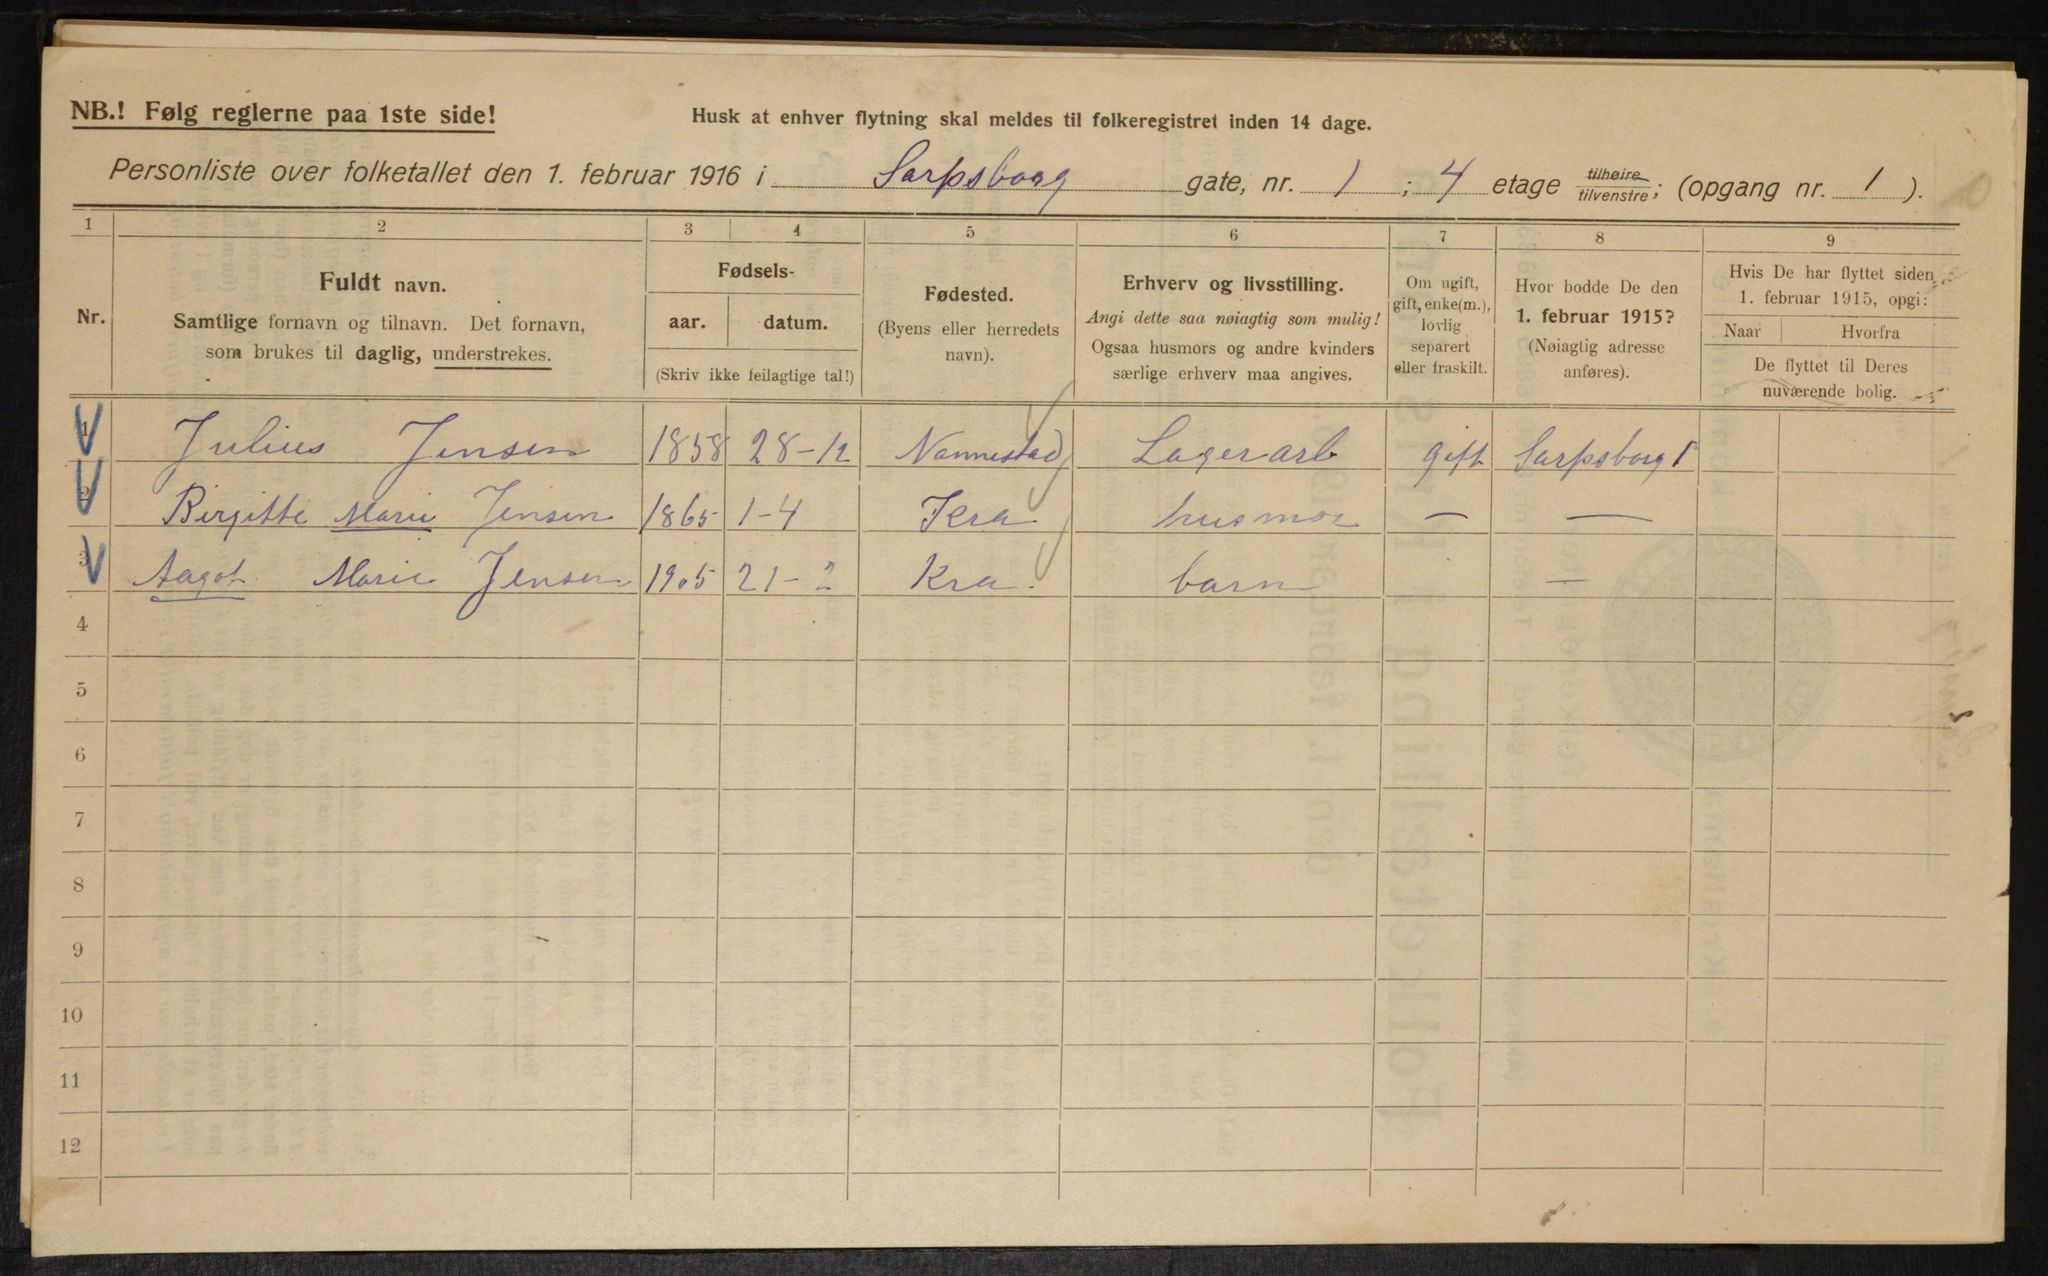 NB.! Følg reglerne paa 1ste side!
Husk at enhver flytning skal meldes til folkeregistret inden 14 dage.
Personliste over folketallet den 1. februar 1916 i Sarpsborg gate, nr. 1 ; 4 etage tilhøire/tilvenstre; (opgang nr. 1 ).
1 2 3 4 5 6 7 8 9
Nr.
Fuldt navn.
Samtlige fornavn og tilnavn. Det fornavn,
som brukes til daglig, understrekes.
Fødsels-
aar. datum.
(Skriv ikke feilagtige tal!)
Fødested.
(Byens eller herredets
navn).
Erhverv og livsstilling.
Angi dette saa nøiagtig som mulig!
Ogsaa husmors og andre kvinders
særlige erhverv maa angives.
Om ugift,
gift, enke(m.),
lovlig
separert
eller fraskilt.
Hvor bodde De den
1. februar 1915?
(Nøiagtig adresse
anføres).
Hvis De har flyttet siden
1. februar 1915, opgi:
Naar Hvorfra
De flyttet til Deres
nuværende bolig.
1 Julius Jensen 1858 28-12 Nannestad Lagerarb gift Sarpsborg 1
2 Birgitte Marie Jensen 1865 1-4 Kra husmor — —
3 Aagot Marie Jensen 1905 21- Kra. barn —
4
5
6
7
8
9
10
11
12